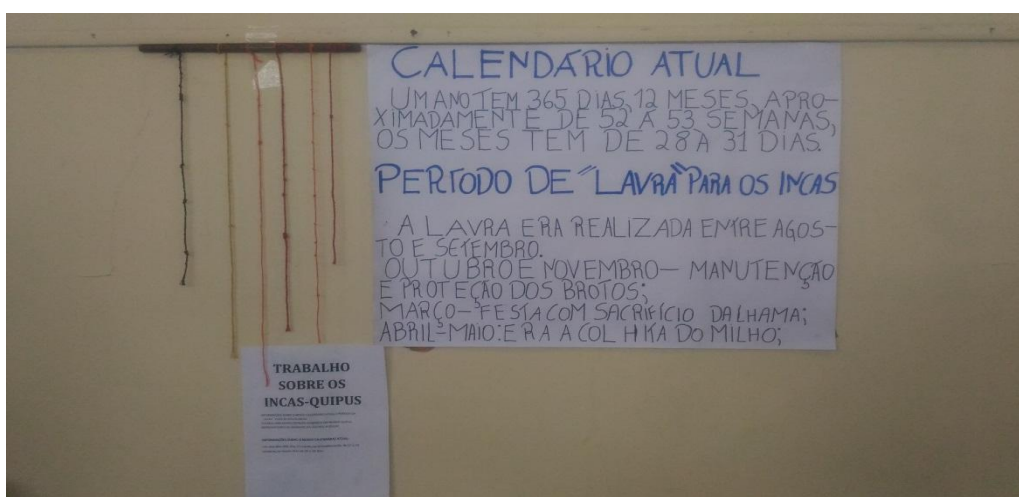 CALENDÁRIO ATUAL
UM ANO TEM 365 DIAS, 12 MESES, APRO-
XIMADAMENTE DE 52 A 53 SEMANAS,
OS MESES TEM DE 28 A 31 DIAS.
PERÍODO DE "LAVRA" PARA OS INCAS
A LAVRA ERA REALIZADA ENTRE AGOS-
TO E SETEMBRO.
OUTUBRO E NOVEMBRO - MANUTENÇÃO
E PROTEÇÃO DOS BROTOS;
MARÇO - FESTA COM SACRIFÍCIO DA LHAMA;
ABRIL - MAIO: ERA A DO MILHO;
TRABALHO
SOBRE OS
INCAS-QUIPUS